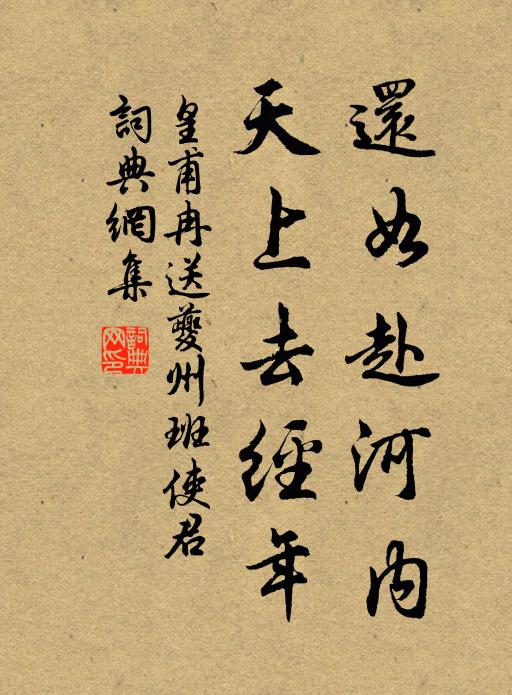 還如赴河內
天上去經年
皇甫冉送夔州班使君
詞典網集
詞典
网印